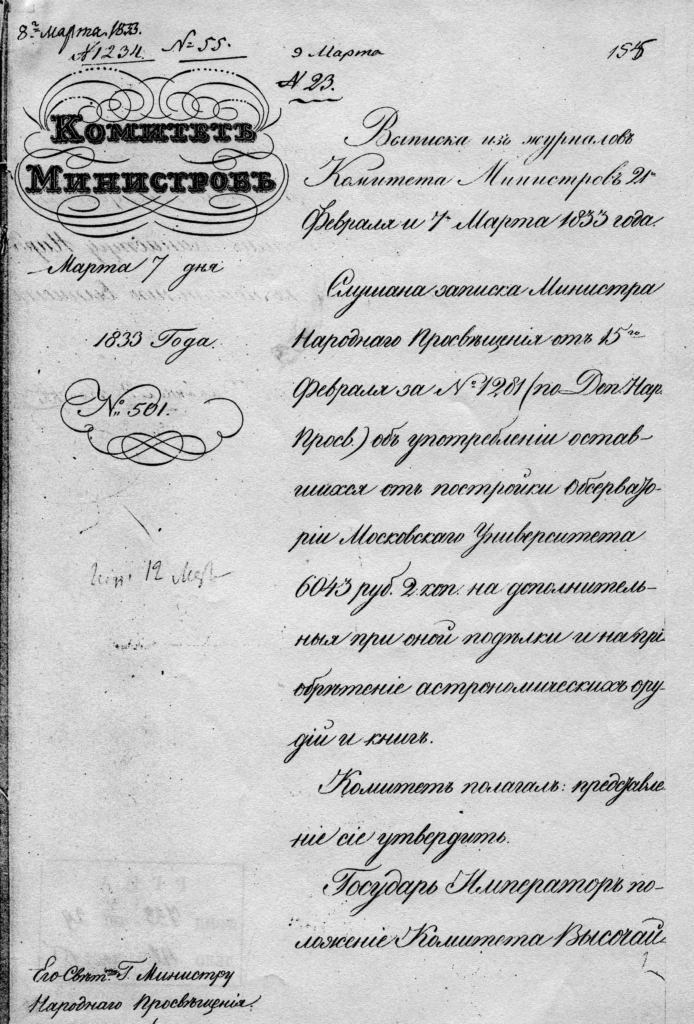 8го Марта 1833.
№ 1234. № 55.
9 Марта
№ 23.
Комитетъ
Министровъ
Марта 7 дня
1833 Года.
№ 501.
Выписка изъ журналовъ
Комитета Министровъ 21го
Февраля и 7го Марта 1833 года.
Слушана записка Министра
Народнаго Просвѣщенія отъ 15го
Февраля за № 1281 (по Деп. Нар.
Просв.) объ употребленіи остав-
шихся отъ постройки Обсервато-
ріи Московскаго Университета
6043 руб. 2 коп. на дополнитель-
ныя при оной подѣлки и на прі
обрѣтеніе астрономическихъ ору-
дій и книгъ.
Комитетъ полагалъ: представле
ніе сіе утвердить.
Государь Императоръ по-
ложеніе Комитета Высочай
Его Свѣтл. Г. Министру
Народнаго Просвѣщенія.